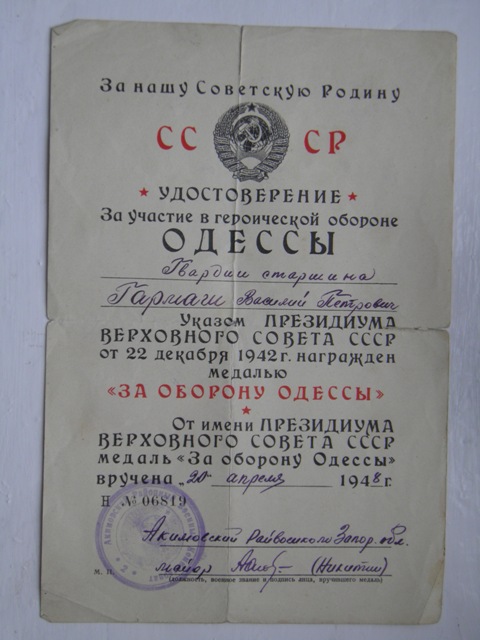 За нашу Советскую Родину
СС СР
УДОСТОВЕРЕНИЕ
За участие в героической обороне
ОДЕССЫ
Гвардии старшина
Гармаш Василий Петрович
Указом ПРЕЗИДИУМА
ВЕРХОВНОГО СОВЕТА СССР
от 22 декабря 1942 г. награжден
медалью
«ЗА ОБОРОНУ ОДЕССЫ»
От имени ПРЕЗИДИУМА
ВЕРХОВНОГО СОВЕТА СССР
медаль «За оборону Одессы»
вручена „20" апреля 1948 г.
Н № 06819
Акимовский Райвоенком Запор. обл.
майор (Никитин)
М. П.
(должность, воинское звание и подпись лица, вручившего медаль)